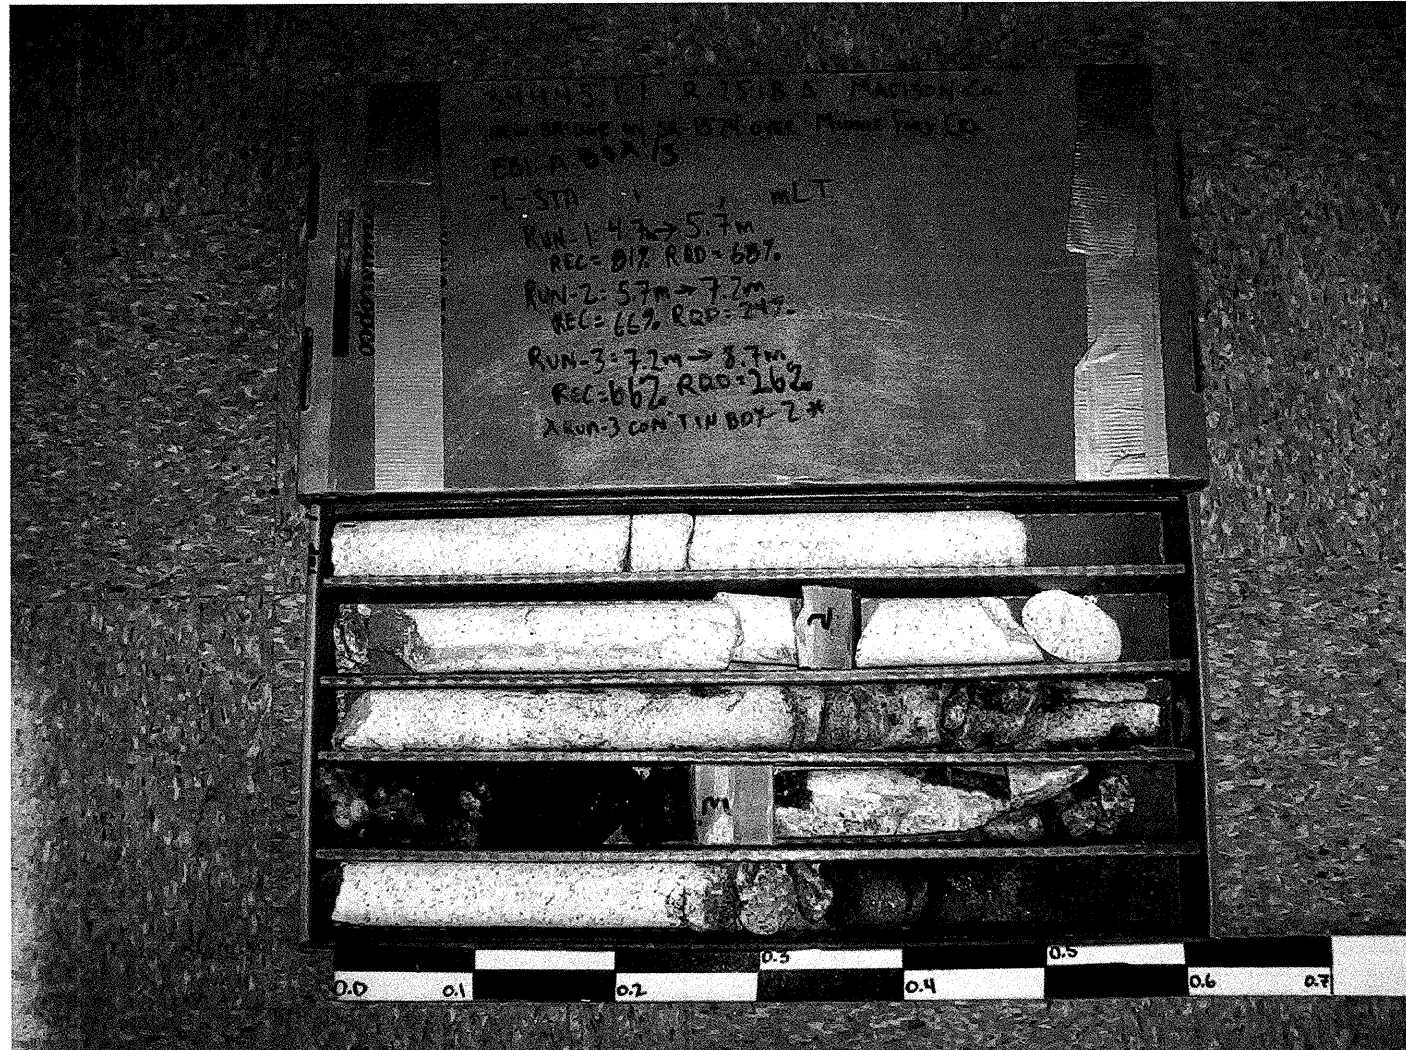 R-2518 A MADISON CO.
NEW BRIDGE W/ SR-1524 OVER MIDDLE FORK CRK
EB1-A BOX 1/3
-L- STA mLT.
RUN-1: 4.7 → 5.7m
REC= 81% RQD = 68%
RUN-2: 5.7m → 7.2m
REC= 66% RQD = 24%
RUN-3 = 7.2m → 8.7m
REC=66% RQD=26%
*RUN-3 CON'T IN BOX-2 *
2
3
0.3
0.5
0.0 0.1 0.2 0.4 0.6 0.7